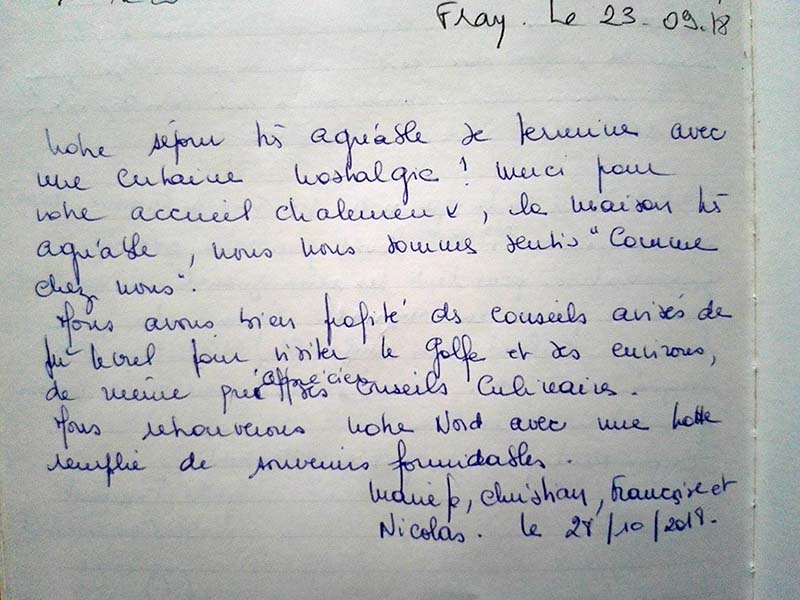 Fray. Le 23.09.18
Notre séjour très agréable se termine avec
une certaine nostalgie ! Merci pour
votre accueil chaleureux, la maison très
agréable, nous nous sommes sentis "comme
chez nous".
Nous avons bien profité des conseils avisés de
pour visiter le golfe et ses environs,
de même que apprécier ses conseils culinaires.
Nous retrouverons notre Nord avec une hotte
remplie de souvenirs formidables.
Christian, Françoise et
Nicolas. le 28/10/2018.